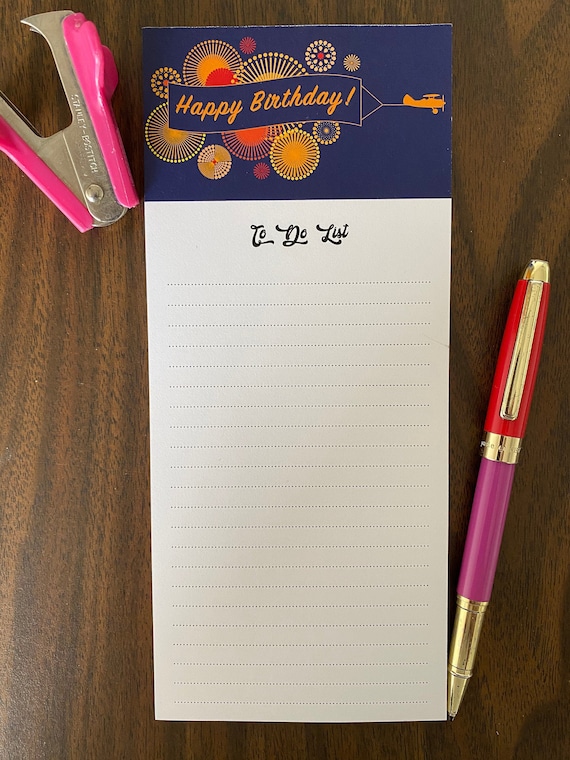 STANLEY-BOSTITCH
Happy Birthday!
To Do List